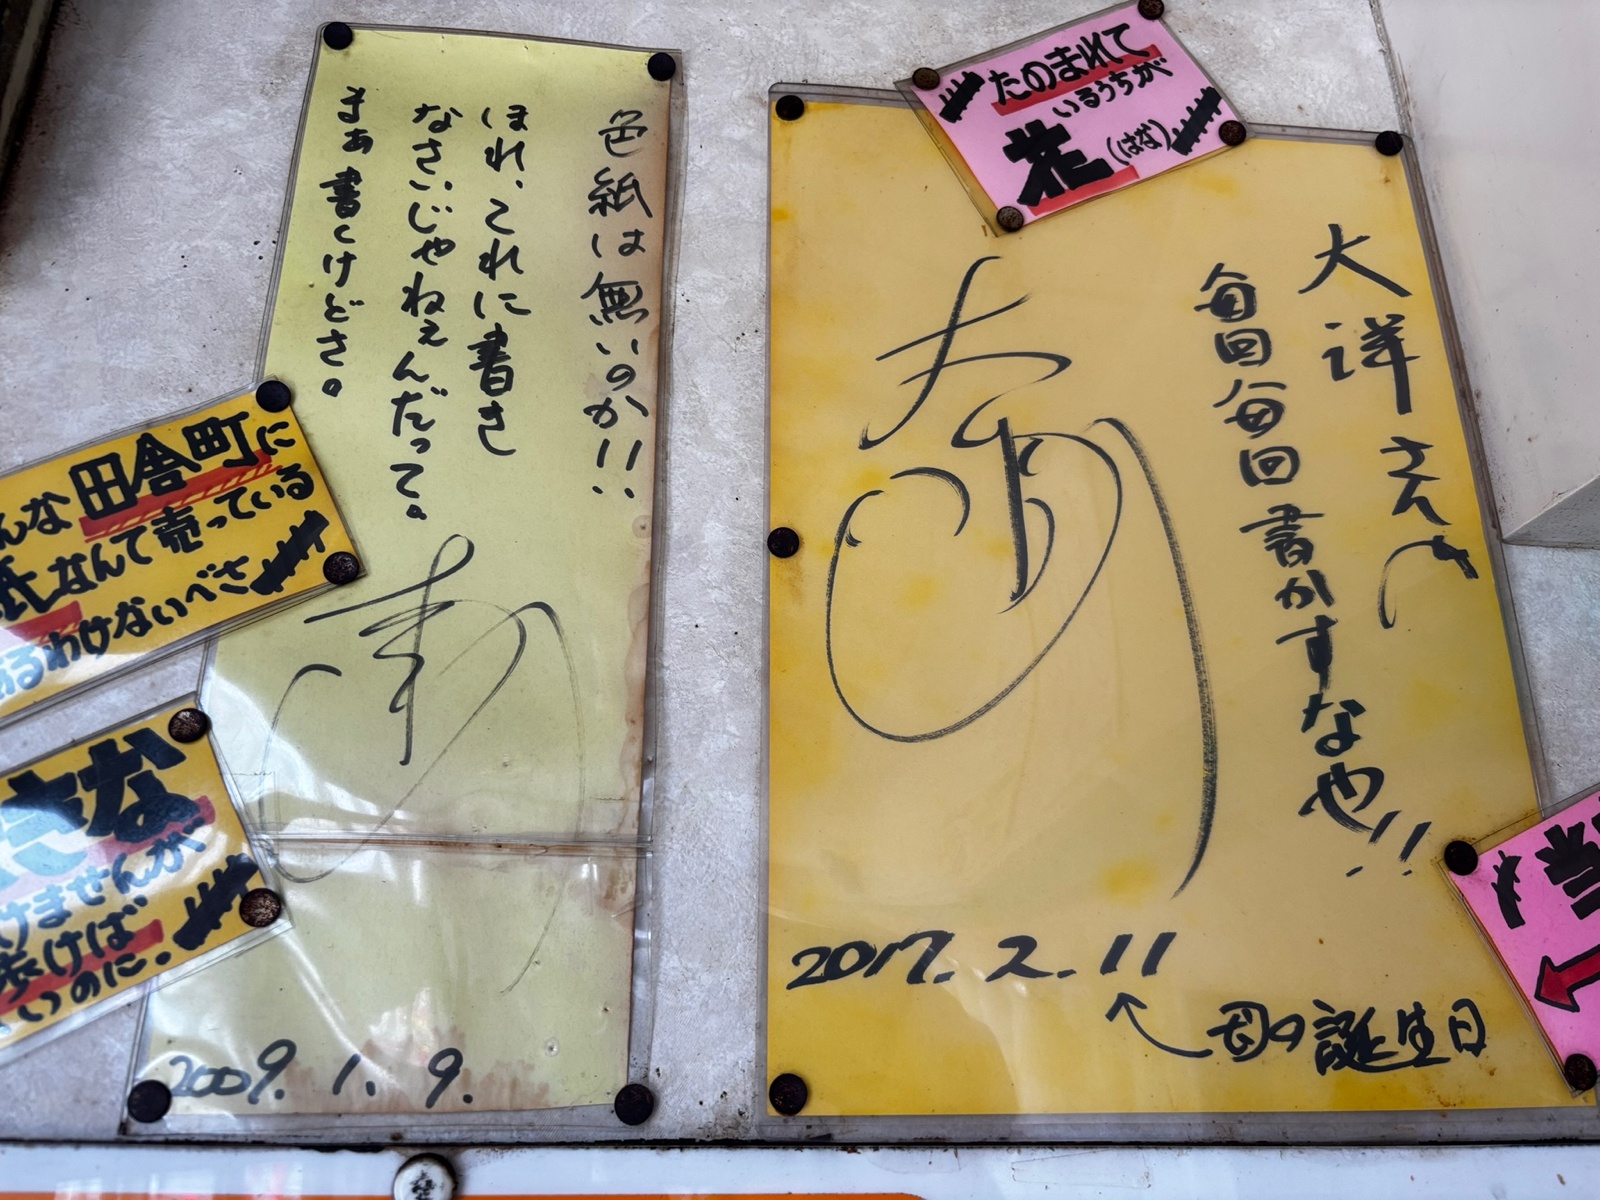 色紙は無いのか!!
ほれ、これに書き
なさいじゃねぇんだって。
まぁ書くけどさ。
2009. 1. 9.
んな田舎町に
紙なんて売っている
わけないべさ
な
けませんが
歩けば
いのに。
たのまれて
いるうちが
花(はな)
大洋さんや
毎回毎回書かすなや!!
2017. 2. 11
母の誕生日
当